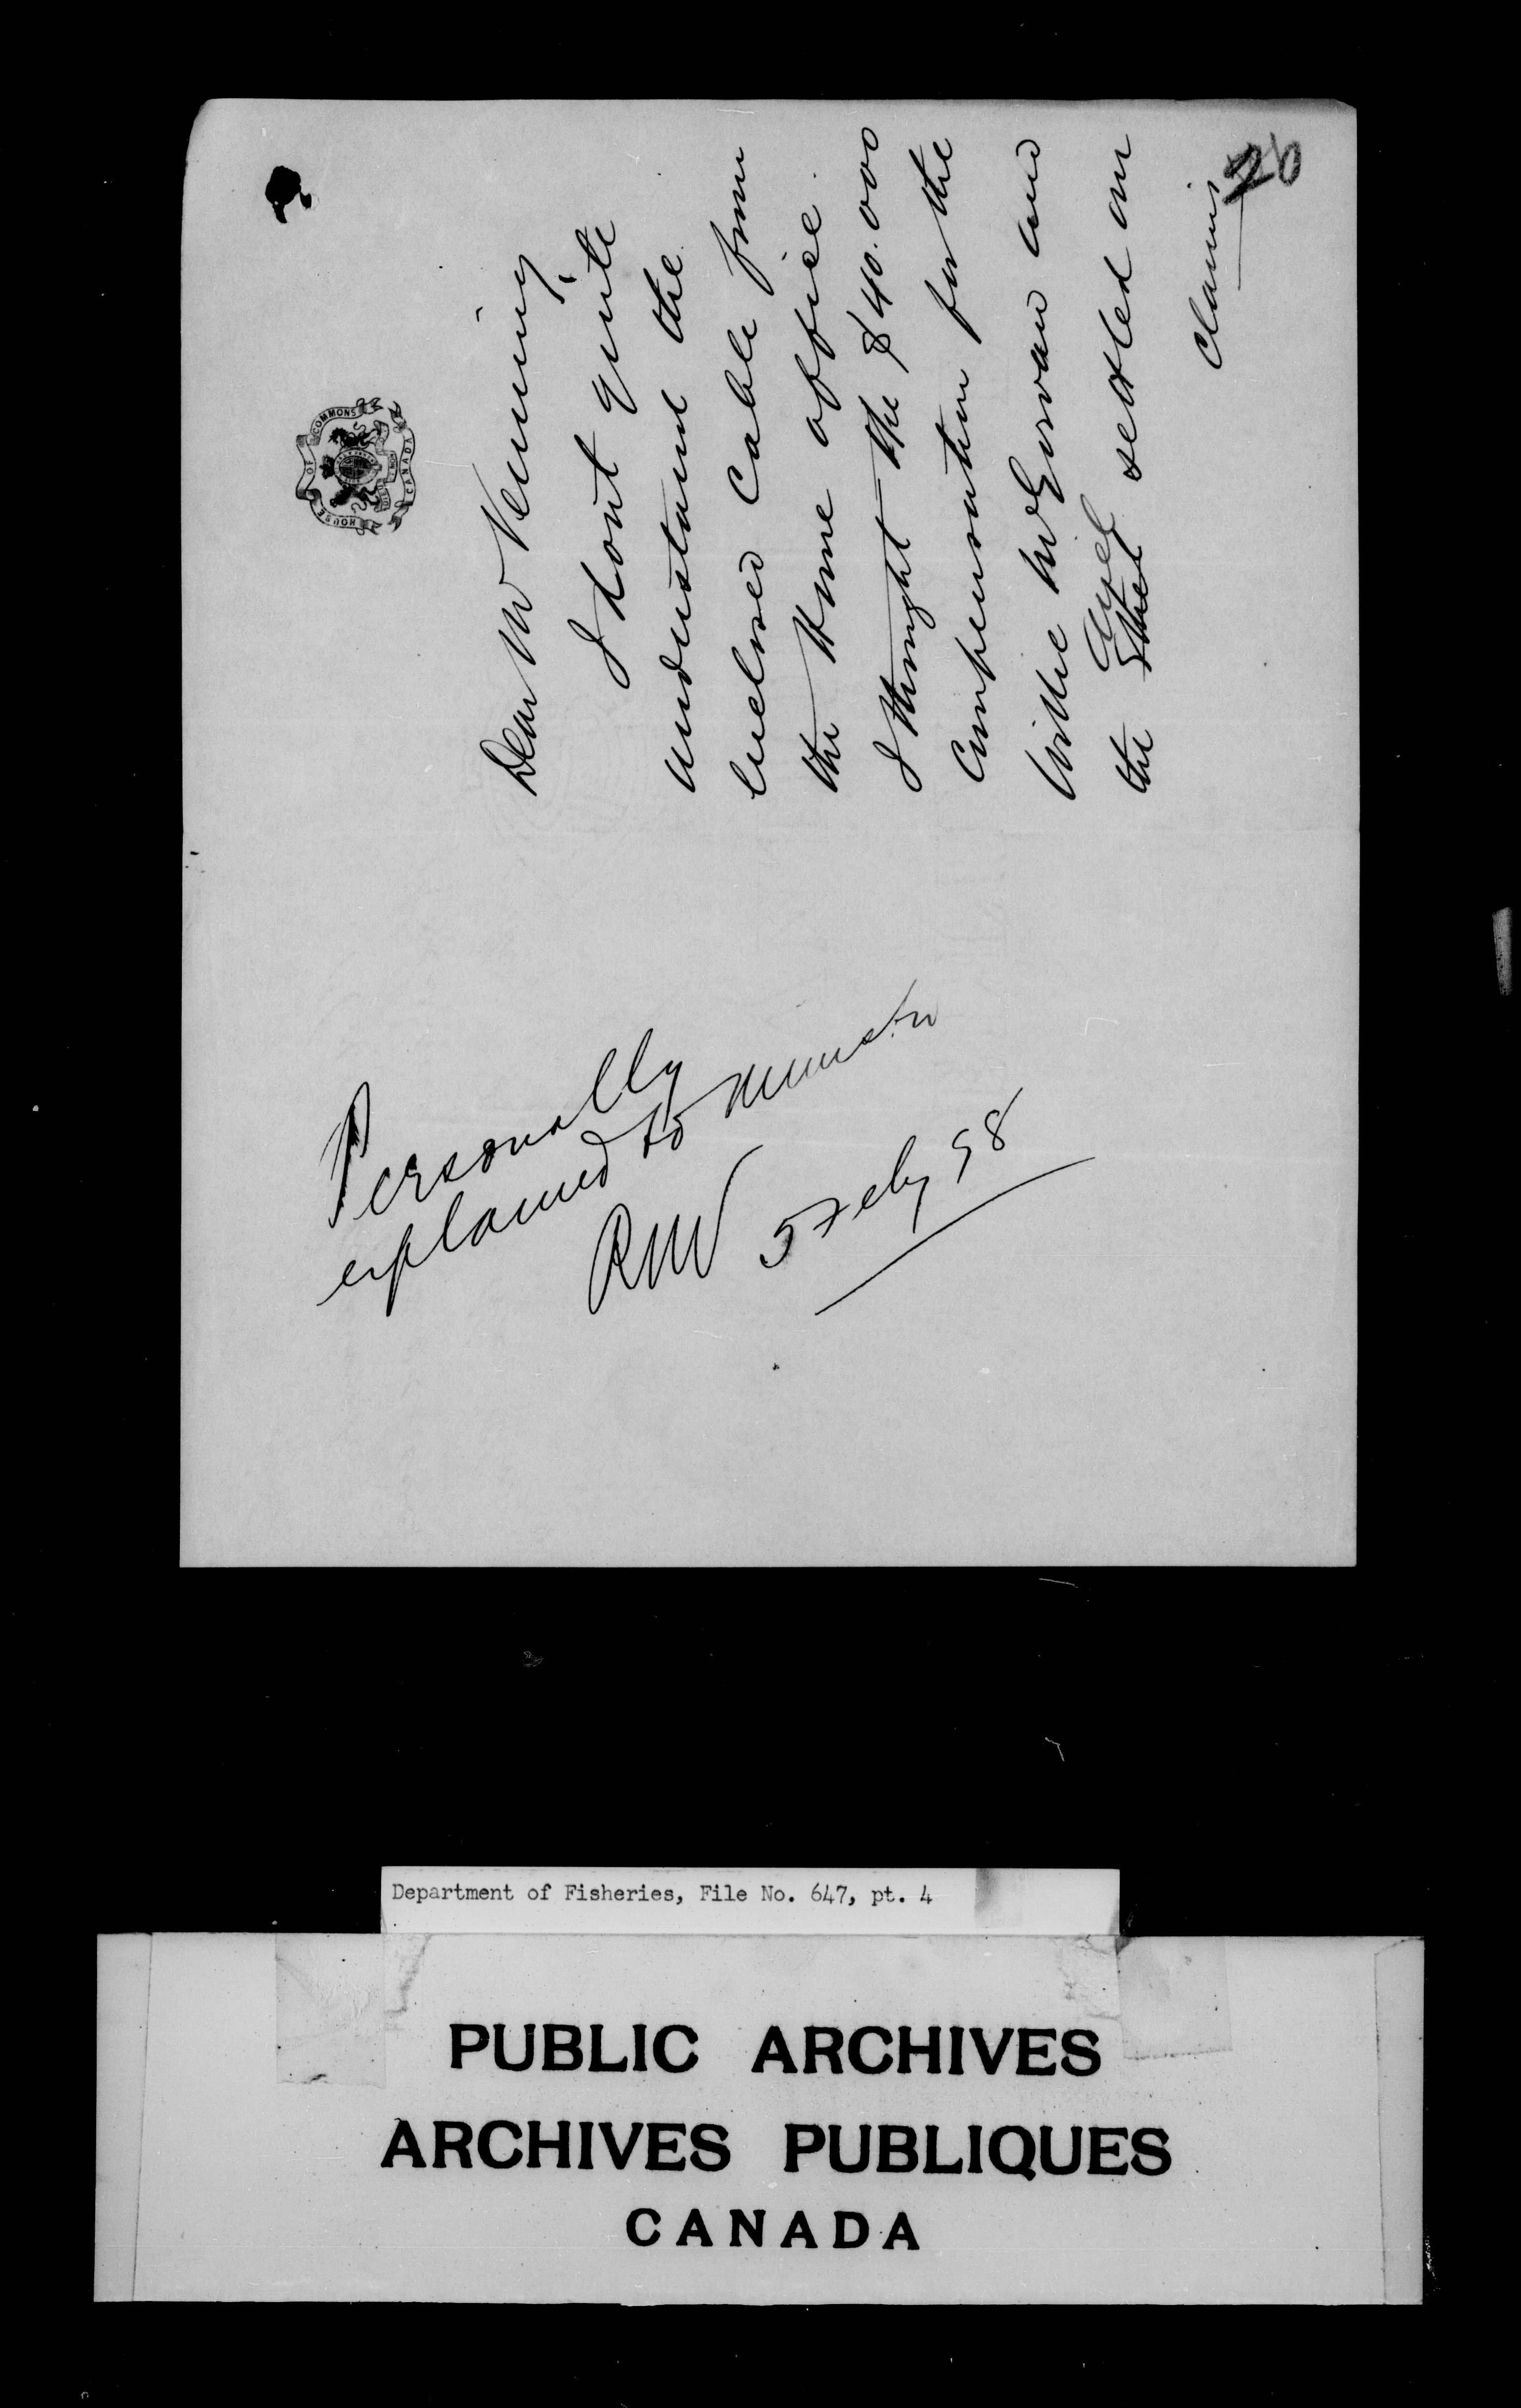 HOUSE OF COMMONS
CANADA
20
Dear Mr Venning,
I dont quite
understand the
enclosed Cable from
the Home office.
I thought the $40.000
Compensation for the
Willie McGowan and
the Ariel settled our
Claims
Personally
explained to Minister
RNV 5 Feby 98
Department of Fisheries, File No. 647, pt. 4
PUBLIC ARCHIVES
ARCHIVES PUBLIQUES
CANADA